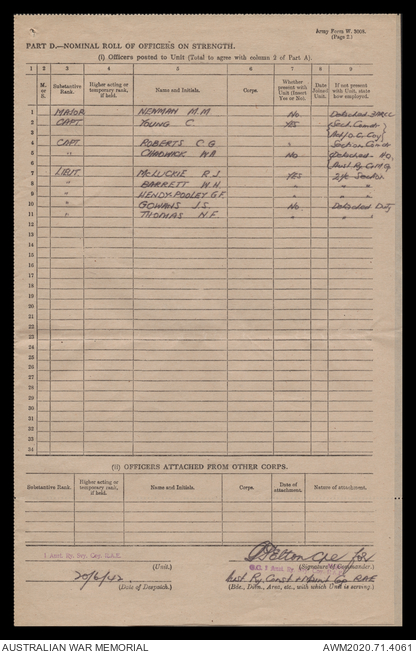 Army Form W. 3008.
(Page 2)
PART D.—NOMINAL ROLL OF OFFICERS ON STRENGTH.
(i) Officers posted to Unit (Total to agree with column 2 of Part A).
1 2 3 4 5 6 7 8 9
M. or S. Substantive Rank. Higher acting or temporary rank, if held. Name and Initials. Corps. Whether present with Unit (Insert Yes or No). Date Joined Unit. If not present with Unit, state how employed.
1 MAJOR NEWMAN M.M No Detached
2 CAPT. YOUNG C. YES Sect. Comd
3 Adj/O.C. Coy
4 CAPT. ROBERTS C G " Section Comd
5 " CHADWICK WA No Detached HQ.
6 Aust Ry C
7 LIEUT. McLUCKIE R J YES 2/ic Section
8 " BARRETT W.H. " " "
9 " HENDY-POOLEY G.F. " " "
10 " GOWANS J.S. No Detached Duty
11 " THOMAS N.F. " " "
12
13
14
15
16
17
18
19
20
21
22
23
24
25
26
27
28
29
30
31
32
33
34
(ii) OFFICERS ATTACHED FROM OTHER CORPS.
Substantive Rank. Higher acting or temporary rank, if held. Name and Initials. Corps. Date of attachment. Nature of attachment.
1 Aust. Ry. Svy. Coy. R.A.E.
(Unit.)
Cpe for
O.C. 1 Aust. Ry
(Signature of Commander.)
20/6/42
(Date of Despatch.)
Aust Ry. Const & Maint Gp RAE
(Bde., Divn., Area, etc., with which Unit is serving.)
AUSTRALIAN WAR MEMORIAL
AWM2020.71.4061